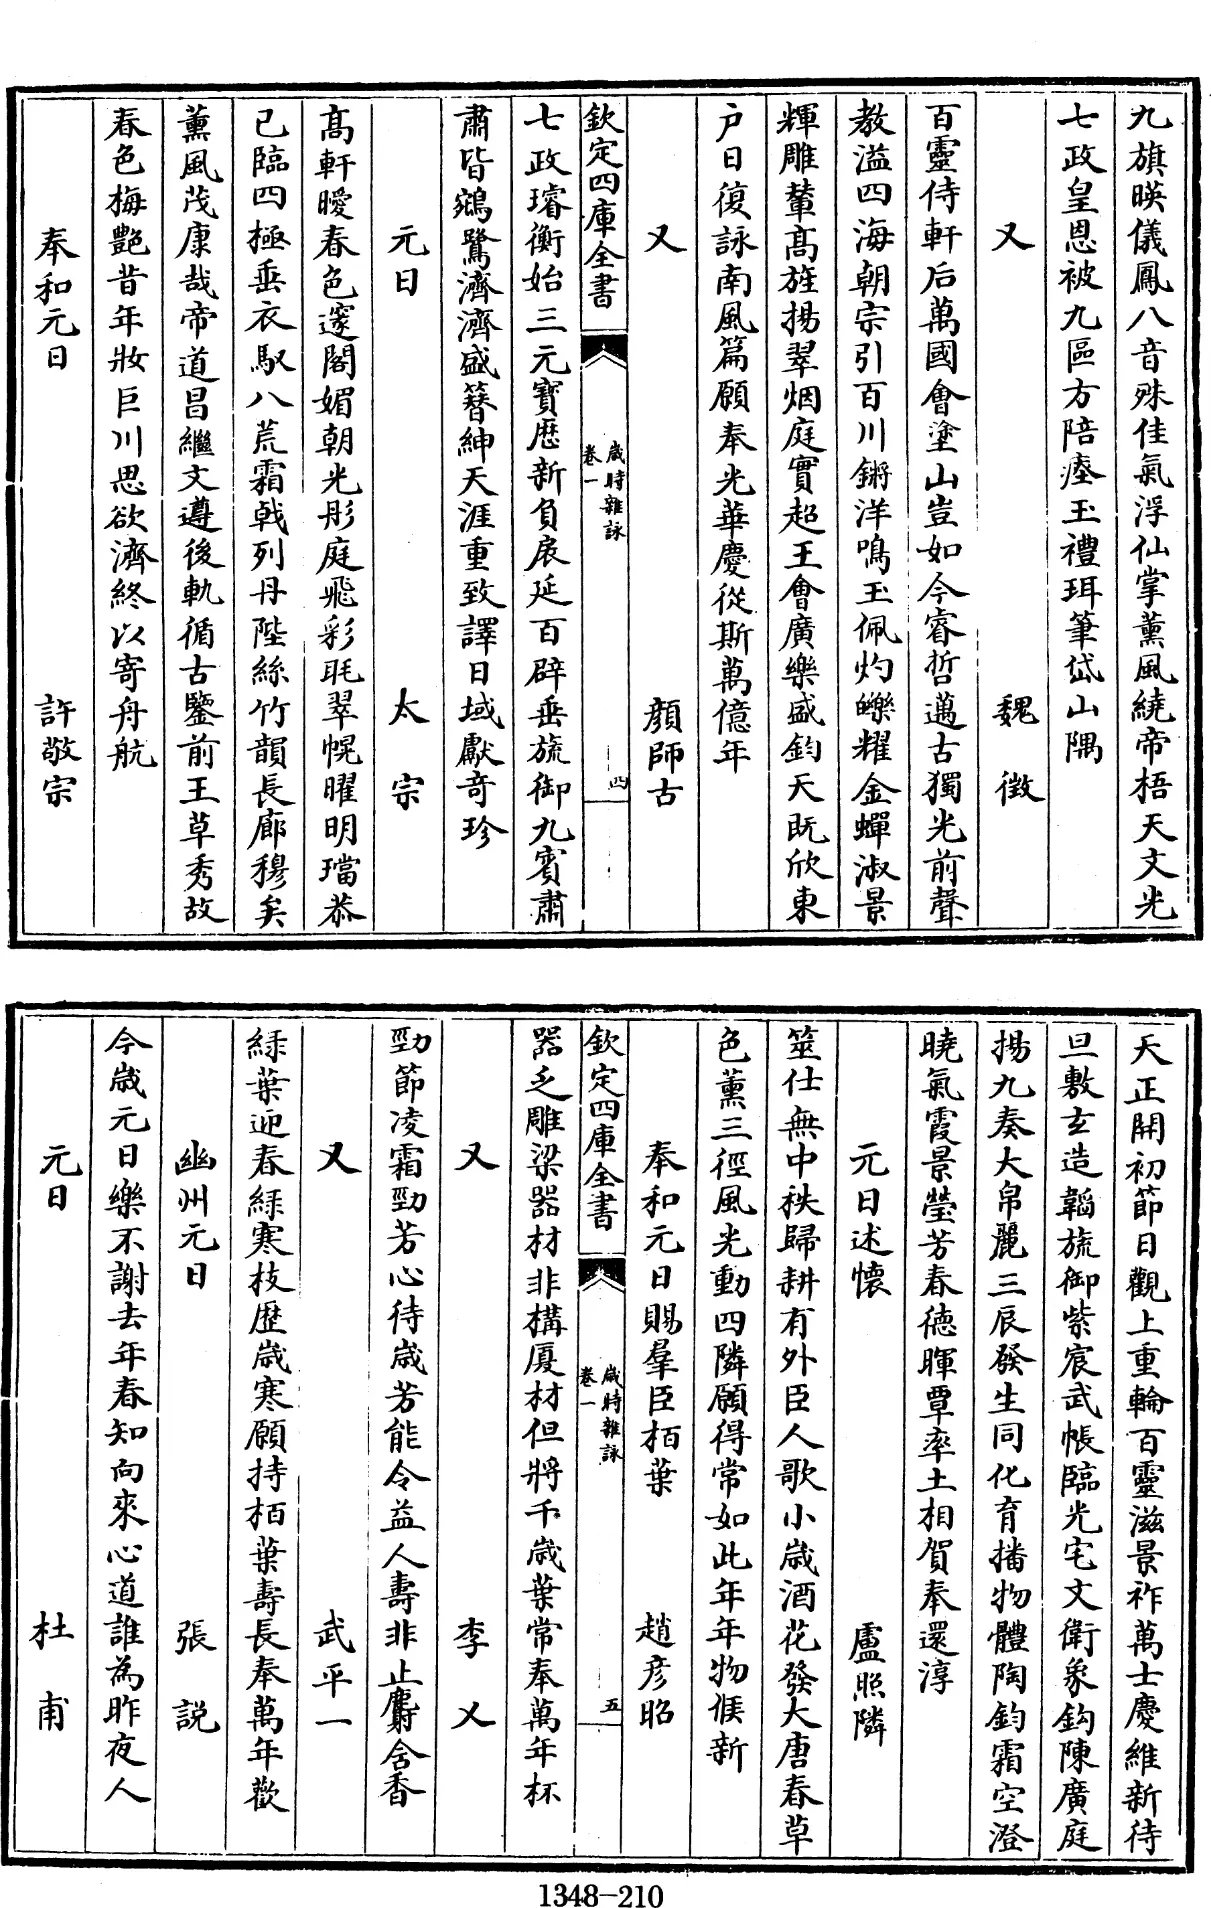 九旗暎儀鳳八音殊佳氣浮仙掌薰風繞帝梧天文光
七政皇恩被九區方陪瘞玉禮珥筆岱山隅
又 魏徵
百靈侍軒后萬國會塗山豈如今睿哲邁古獨光前聲
教溢四海朝宗引百川鏘洋鳴玉佩灼皪耀金蟬淑景
輝雕輦髙旌揚翠烟庭實超王會廣樂盛鈞天既欣東
户日復詠南風篇願奉光華慶從斯萬億年
又 顔師古
欽定四庫全書 歲時雜詠 卷一 四
七政璿衡始三元寳厯新負扆延百辟垂旒御九賓肅
肅皆鵷鷺濟濟盛簪紳天涯重致譯日域獻竒珍
元日 太宗
髙軒曖春色邃閣媚朝光彤庭飛彩旄翠幌曜明璫恭
已臨四極垂衣馭八荒霜戟列丹陛絲竹韻長廊穆矣
薰風茂康哉帝道昌繼文遵後軌循古鑒前王草秀故
春色梅艷昔年妝巨川思欲濟終以寄舟航
奉和元日 許敬宗
天正開初節日觀上重輪百靈滋景祚萬士慶維新待
旦敷玄造韜旒御紫宸武帳臨光宅文衛象鈎陳廣庭
揚九奏大帛麗三辰發生同化育播物體陶鈞霜空澄
曉氣霞景瑩芳春德暉覃率土相賀奉還淳
元日述懷 盧照隣
筮仕無中秩歸耕有外臣人歌小歲酒花發大唐春草
色薰三徑風光動四隣願得常如此年年物候新
奉和元日賜羣臣栢葉 趙彦昭
欽定四庫全書 歲時雜詠 卷一 五
器乏雕梁器材非構厦材但將千歲葉常奉萬年杯
又 李乂
勁節凌霜勁芳心待歲芳能令益人壽非止麝含香
又 武平一
緑葉迎春緑寒枝歴歲寒願持栢葉壽長奉萬年歡
幽州元日 張説
今歲元日樂不謝去年春知向來心道誰為昨夜人
元日 杜甫
1348-210